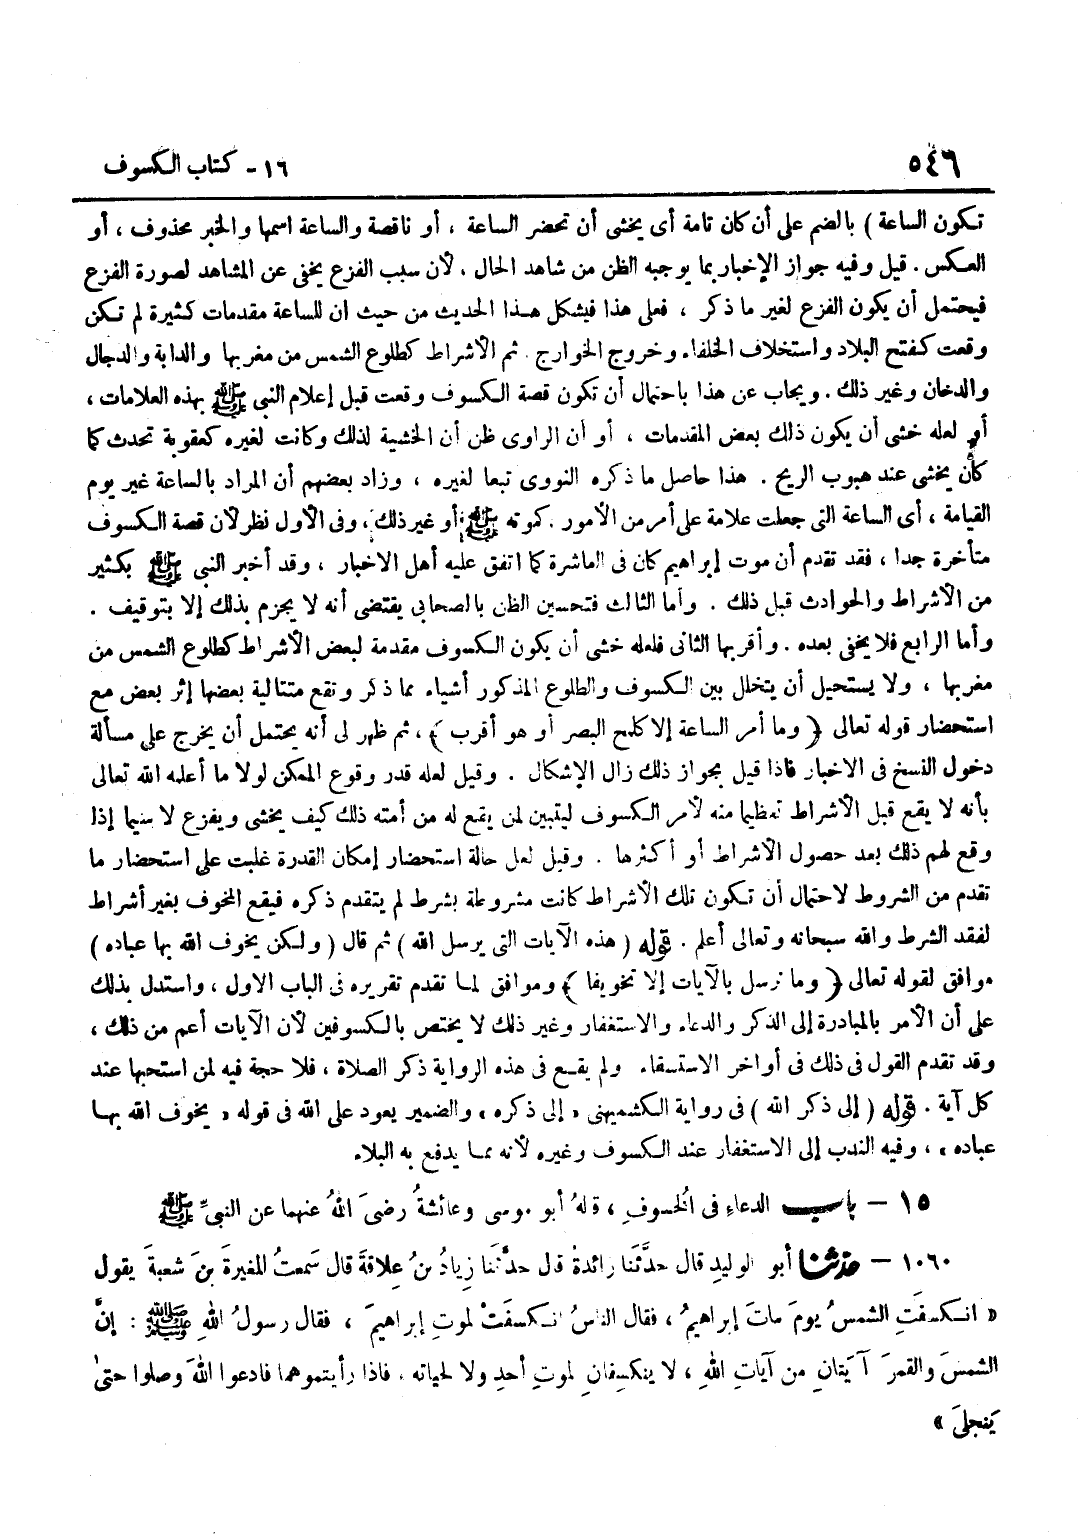 ٥٤٦
١٦ - كتاب الكسوف
تكون الساعة ) بالضم على أن كان تامة أى يخشى أن تحضر الساعة ، أو ناقصة والساعة اسمها والخبر محذوف ، أو
العكس . قيل وفيه جواز الإخبار بما يوجبه الظن من شاهد الحال ، لأن سبب الفزع يخفى عن المشاهد لصورة الفزع
فيحتمل أن يكون الفزع لغير ما ذكر ، فعلى هذا فيشكل هذا الحديث من حيث ان للساعة مقدمات كثيرة لم تكن
وقعت كفتح البلاد واستخلاف الخلفاء وخروج الخوارج . ثم الأشراط كطلوع الشمس من مغربها والدابة والدجال
والدخان وغير ذلك . ويجاب عن هذا باحتمال أن تكون قصة الكسوف وقعت قبل إعلام النبي ﷺ بهذه العلامات ،
أو لعله خشى أن يكون ذلك بعض المقدمات ، أو أن الراوى ظن أن الخشية لذلك وكانت لغيره كعقوبة تحدث كما
كان يخشى عند هبوب الريح . هذا حاصل ما ذكره النووى تبعا لغيره ، وزاد بعضهم أن المراد بالساعة غير يوم
القيامة ، أى الساعة التى جعلت علامة على أمر من الأمور . كموته ﷺ أو غير ذلك ، وفى الأول نظر لأن قصة الكسوف
متأخرة جدا ، فقد تقدم أن موت إبراهيم كان فى العاشرة كما اتفق عليه أهل الاخبار ، وقد أخبر النبى ﷺ بكثير
من الأشراط والحوادث قبل ذلك . وأما الثالث فتحسين الظن بالصحابى يقتضى أنه لا يجزم بذلك إلا بتوقيف .
وأما الرابع فلا يخفى بعده . وأقربها الثانى فلعله خشى أن يكون الكسوف مقدمة لبعض الأشراط كطلوع الشمس من
مغربها ، ولا يستحيل أن يتخلل بين الكسوف والطلوع المذكور أشياء مما ذكر وتقع متتالية بعضها إثر بعض مع
استحضار قوله تعالى ﴿ وما أمر الساعة إلا كلمح البصر أو هو أقرب ﴾ ، ثم ظهر لى أنه يحتمل أن يخرج على مسألة
دخول النسخ فى الاخبار فاذا قيل بجواز ذلك زال الإشكال . وقيل لعله قدر وقوع الممكن لولا ما أعلمه الله تعالى
بأنه لا يقع قبل الأشراط تعظيما منه لأمر الكسوف ليتبين لمن يقع له من أمته ذلك كيف يخشى ويفزع لا سيما إذا
وقع لهم ذلك بعد حصول الأشراط أو أكثرها . وقيل لعل حالة استحضار إمكان القدرة غلبت على استحضار ما
تقدم من الشروط لاحتمال أن تكون تلك الأشراط كانت مشروطة بشرط لم يتقدم ذكره فيقع المخوف بغير أشراط
لفقد الشرط والله سبحانه وتعالى أعلم . قوله ( هذه الآيات التى يرسل الله ) ثم قال ( ولكن يخوف الله بها عباده )
موافق لقوله تعالى ﴿ وما نرسل بالآيات إلا تخويفا ﴾ وموافق لما تقدم تقريره فى الباب الاول ، واستدل بذلك
على أن الأمر بالمبادرة إلى الذكر والدعاء والاستغفار وغير ذلك لا يختص بالكسوفين لأن الآيات أعم من ذلك ،
وقد تقدم القول فى ذلك فى أواخر الاستسقاء ولم يقع فى هذه الرواية ذكر الصلاة ، فلا حجة فيه لمن استحبها عند
كل آية . قوله ( إلى ذكر الله ) فى رواية الكشميهنى « إلى ذكره ، والضمير يعود على الله فى قوله « يخوف الله بها
عباده ، ، وفيه الندب إلى الاستغفار عند الكسوف وغيره لأنه مما يدفع به البلاء .
١٥ - باب الدعاءِ فى الخسوفِ ، قالهُ أبو موسى وعائشةُ رضىَ اللهُ عنهما عن النبىِّ ﷺ
١٠٦٠ - حدثنا أبو الوليدِ قال حدَّثَنا زائدةُ قال حدَّثَنا زيادُ بنُ عِلاقةَ قال سَمعتُ المُغيرةَ بنَ شعبةَ يقول
« انكسفَتِ الشمسُ يومَ ماتَ إبراهيمُ ، فقال الناسُ انكسفَتْ لموتِ إبراهيمَ ، فقال رسولُ اللهِ ﷺ : إنَّ
الشمسَ والقمرَ آيَتانِ من آياتِ اللهِ ، لا ينكسِفانِ لموتِ أحدٍ ولا لحياته ، فاذا رأيتموهما فادعوا اللهَ وصلوا حتى
يَنجلىَ »